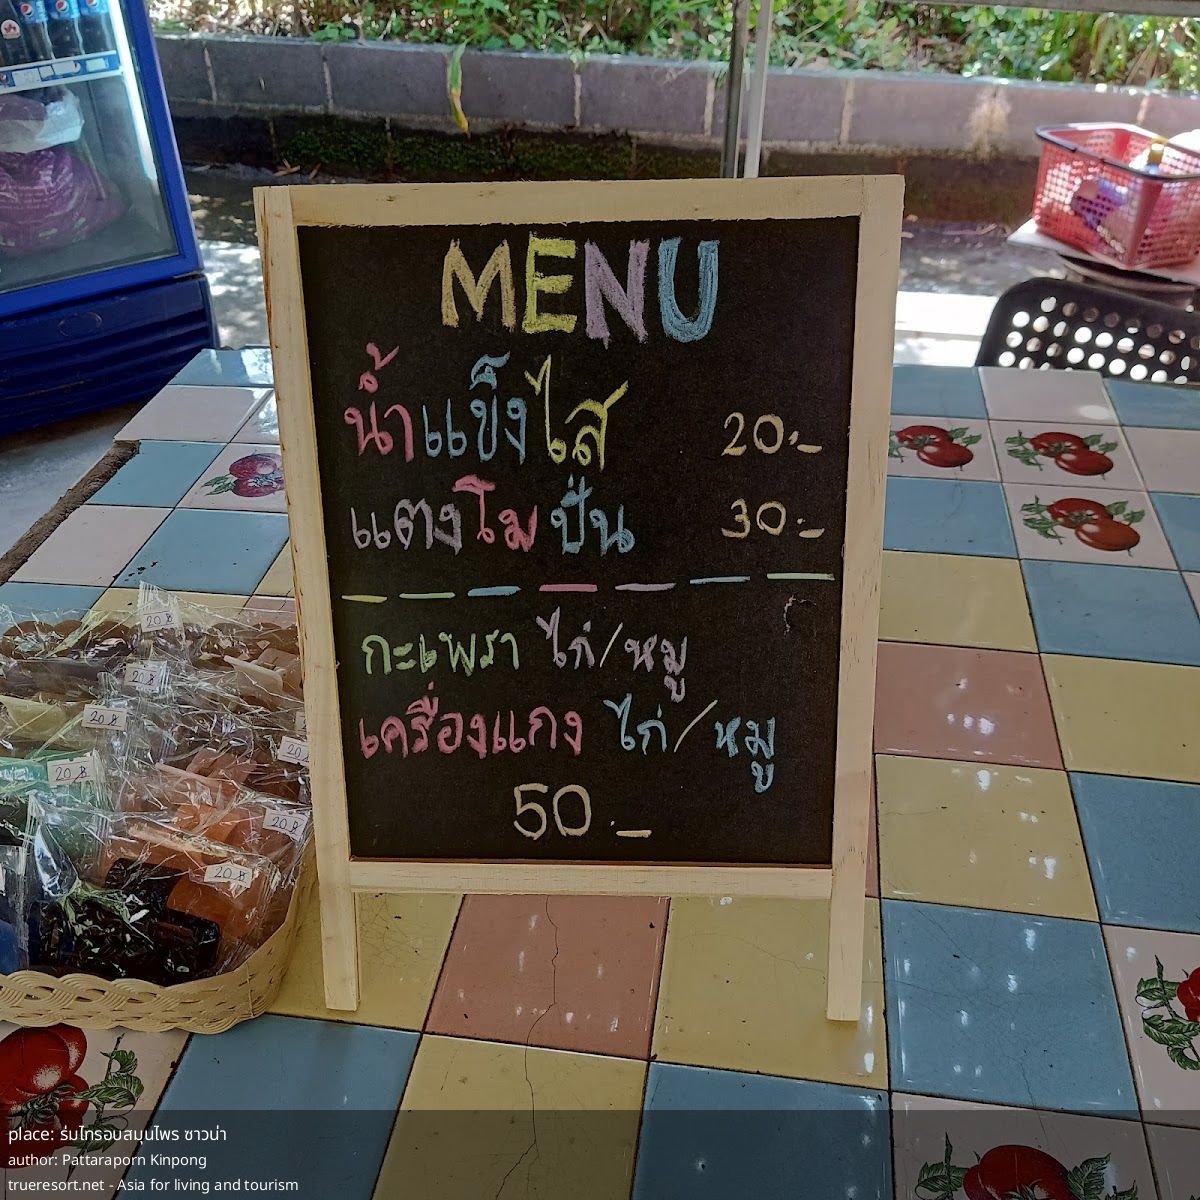 MENU
น้ำแข็งไส 20.-
แตงโมปั่น 30.-
กะเพรา ไก่/หมู
เครื่องแกง ไก่/หมู
50.-
20 ฿
20 ฿
20 ฿
20 ฿
20 ฿
20 ฿
20 ฿
place: ร่มไทรอบสมุนไพร ซาวน่า
author: Pattaraporn Kinpong
trueresort.net - Asia for living and tourism